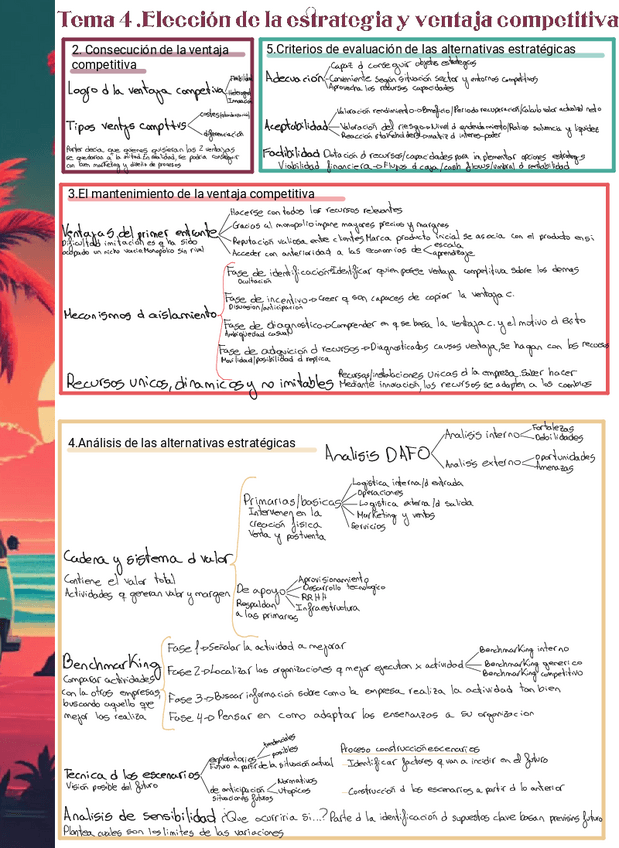 Tema 4 .Elección de la estrategia y ventaja competitiva
2. Consecución de la ventaja
competitiva
Logro d la ventaja competiva
Innovacion
Tipos ventjs compttvs
costes
diferenciación
Porter decia, que quienes quisiesen las 2 ventajas
se quedarian a la mitad. En realidad, se podria conseguir
con bien marketing y diseño de procesos
5.Criterios de evaluación de las alternativas estratégicas
Adecuación
Capat d conseguir objetvs estrategcos
Conveniente según situación sector y entornos competitivos
Aprovecha los recursos capacidades
Aceptabilidad
Valoración rendimiento→Beneficio/Periodo recuperación/Calculo valor actualizd neto
Valoración del riesgo→Nivel d endeudamiento/Ratios solvencia y liquidez
Reacción stakeholders
Factibilidad
Dotación d recursos/capacidades para implementar opciones estrategs
Viabilidad financiera→Flujos d caja/cash flows/umbral d rentabilidad
3.El mantenimiento de la ventaja competitiva
Ventajas del primer entrante
Dificultad imitación es q ha sido
ocupado un nicho vacio.Monopolico sin rival
Hacerse con todos los recursos relevantes
Gracias al monopolio impone mayores precios y margenes
Reputación valiosa entre clientes.Marca producto inicial se asocia con el producto en si
Acceder con anterioridad a las economias de
escala
aprendizaje
Mecanismos d aislamiento
Fase de identificación→Identificar quien posee ventaja competitiva sobre los demas
Ocultación
Fase de incentivo→Creer q son capaces de copiar la ventaja c.
Disuasion/anticipación
Fase de diagnostico→Comprender en q se basa la ventaja c. y el motivo d exito
Ambigüedad causal
Fase de adquición d recursos→Diagnosticados causas ventaja, se hagan con los recursos
Movilidad/posibilidad d replica
Recursos unicos, dinamicos y no imitables
Recursos/instalaciones unicas d la empresa. Saber hacer
Mediante innovación, los recursos se adapten a los cambios
4.Análisis de las alternativas estratégicas
Analisis DAFO
Analisis interno
Fortalezas
Debilidades
Analisis externo
oportunidades
Amenazas
Cadena y sistema d valor
Contiene el valor total
Actividades q generan valor y margen
Primarias/basicas
Intervienen en la
creación fisica
Venta y postventa
Logistica interna/d entrada
Operaciones
Logistica externa/d salida
Marketing y ventas
Servicios
De apoyo
Respaldan
a las primarias
Aprovisionamiento
Desarrollo tecnologico
RRHH
Infraestructura
Benchmarking
Comparar actividades
con la otras empresas,
buscando aquello que
mejor las realiza
Fase 1→Señalar la actividad a mejorar
Fase 2→Localizar las organizaciones q mejor ejecutan x actividad
Benchmarking interno
Benchmarking generico
Benchmarking competitivo
Fase 3→Buscar información sobre como la empresa realiza la actividad tan bien
Fase 4→Pensar en como adaptar las enseñanzas a su organizacion
Tecnica d los escenarios
Visión posible del futuro
exploratorios
Futuro a partir de la situación actual
tendenciales
posibles
de anticipación
situaciones futuras
Normativos
Utopicos
Proceso construcción escenarios
Identificar factores q van a incidir en el futuro
Construcción d los escenarios a partir d lo anterior
Analisis de sensibilidad ¿Que ocurriria si...? Parte d la identificación d supuestos clave basan previsions futuro
Plantea cuales son los limites de las variaciones